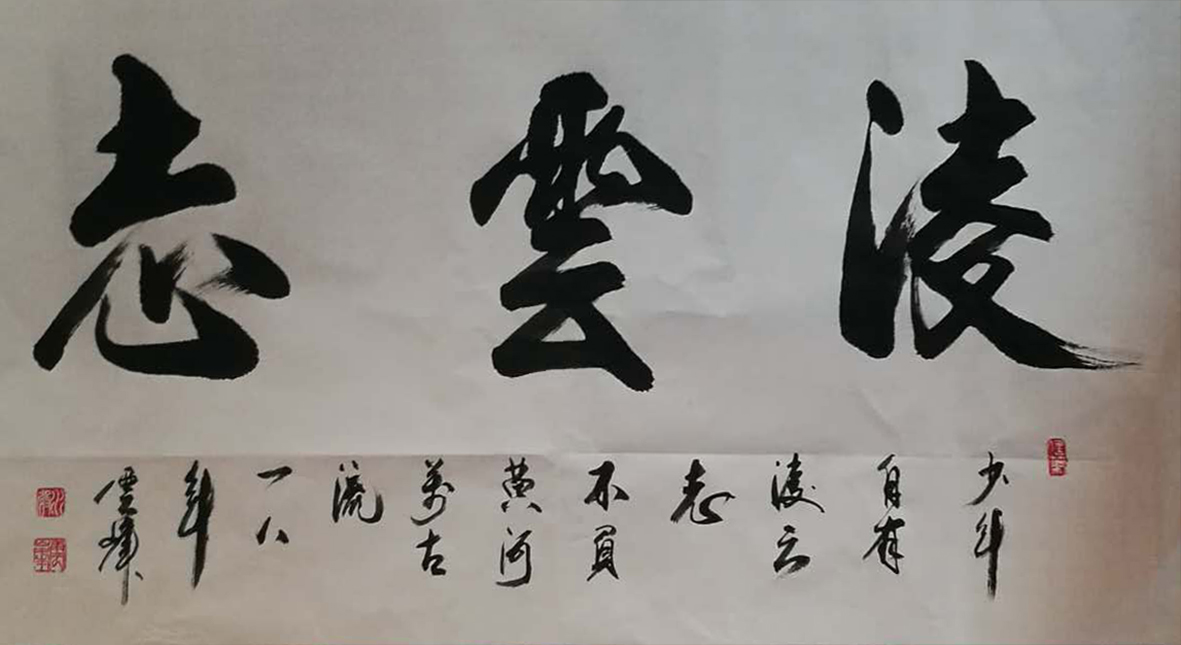 凌雲志
少年
自有
凌云
志
不負
黄河
萬古
流
一八
年
雲峰